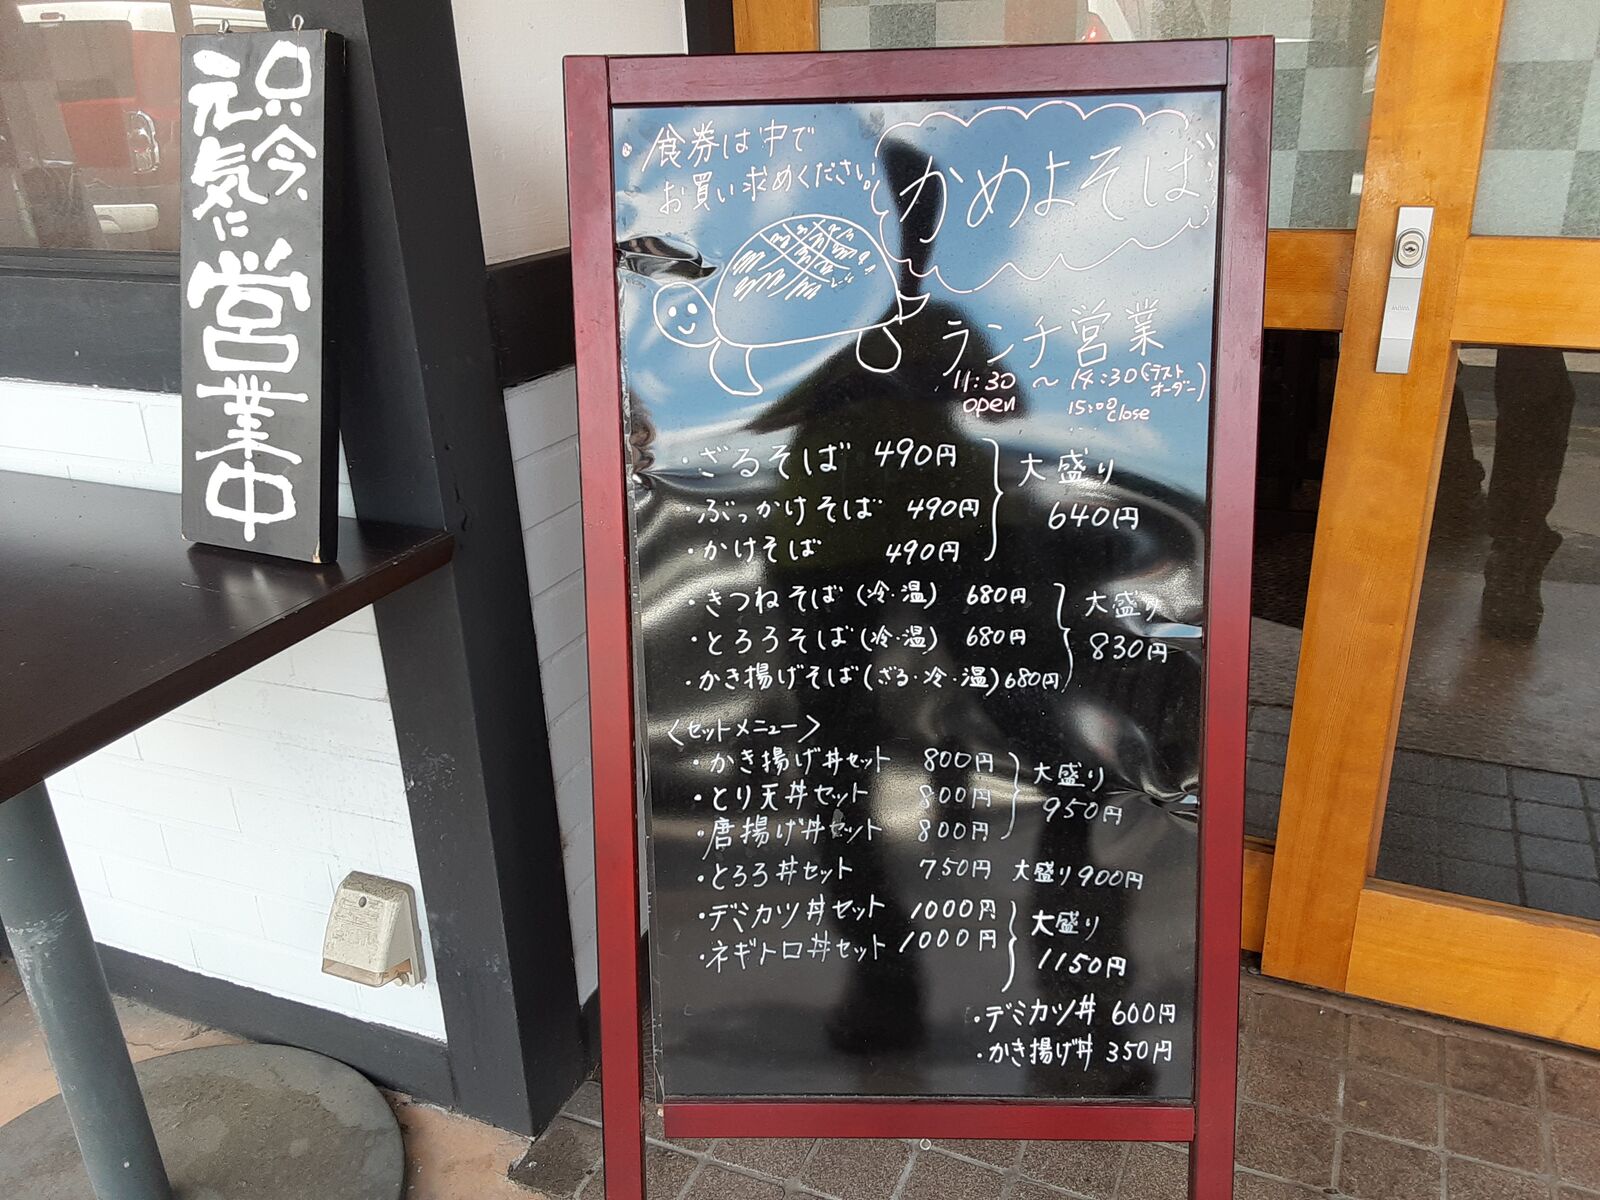 只今、
元気に
営業中
・食券は中で
お買い求めください。
かめよそば
ランチ営業
11:30 ～ 14:30(ラスト
オーダー)
open 15:00 close
・ざるそば 490円
・ぶっかけそば 490円
・かけそば 490円
大盛り
640円
・きつねそば(冷・温) 680円
・とろろそば(冷・温) 680円
・かき揚げそば(ざる・冷・温)680円
大盛り
830円
〈セットメニュー〉
・かき揚げ丼セット 800円
・とり天丼セット 800円
・唐揚げ丼セット 800円
大盛り
950円
・とろろ丼セット 750円 大盛り900円
・デミカツ丼セット 1000円
・ネギトロ丼セット 1000円
大盛り
1150円
・デミカツ丼 600円
・かき揚げ丼 350円
MIWA